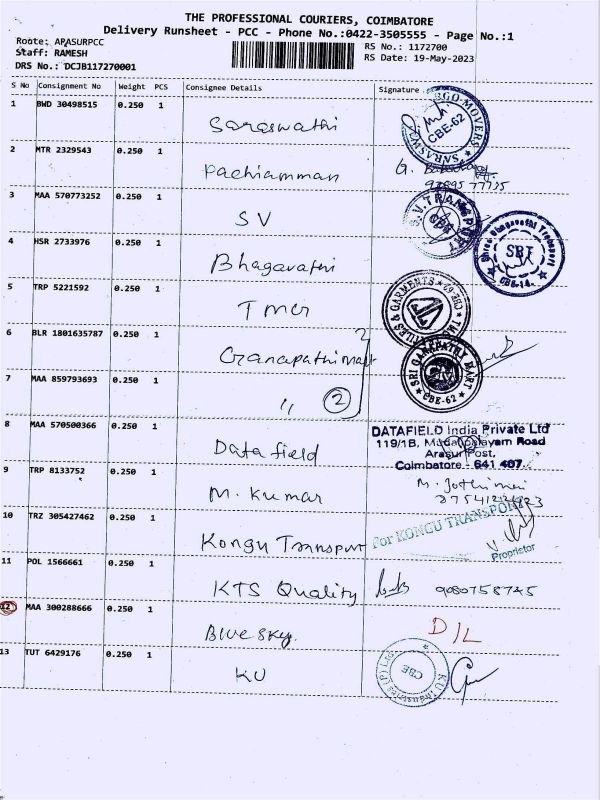 THE PROFESSIONAL COURIERS, COIMBATORE
Delivery Runsheet - PCC - Phone No.:0422-3505555 - Page No.:1
Route: ARASURPCC
RS No.: 1172700
Staff: RAMESH
RS Date: 19-May-2023
DRS No.: DCJB117270001
S No Consignment No Weight PCS Consignee Details Signature
1 BWD 30498515 0.250 1 Saraswathi
CBE-62
2 MTR 2329543 0.250 1 Pachiamman G.
3 MAA 570773252 0.250 1 SV
S.V. TRANSPORT
CBE
4 HSR 2733976 0.250 1 Bhagavathi
Shree Bhagavathi Transport
SBT
CBE-14.
5 TRP 5221592 0.250 1 Tmer
TILES & GARMENTS
6 BLR 1801635787 0.250 1 Ganapathi mart
SRI GANAPATHY MART
CBE-62
7 MAA 859793693 0.250 1 " 2
8 MAA 570500366 0.250 1 Datafield
DATAFIELD India Private Ltd
119/1B, Mudalipalayam Road
Arasur Post,
Coimbatore - 641 407.
9 TRP 8133752 0.250 1 M. Kumar M.
10 TRZ 305427462 0.250 1 Kongu Transport
For KONGU TRANSPORT
Proprietor
11 POL 1566661 0.250 1 KTS Quality 9080758745
12 MAA 300288666 0.250 1 Blue sky. D/L
13 TUT 6429176 0.250 1 KU
CBE